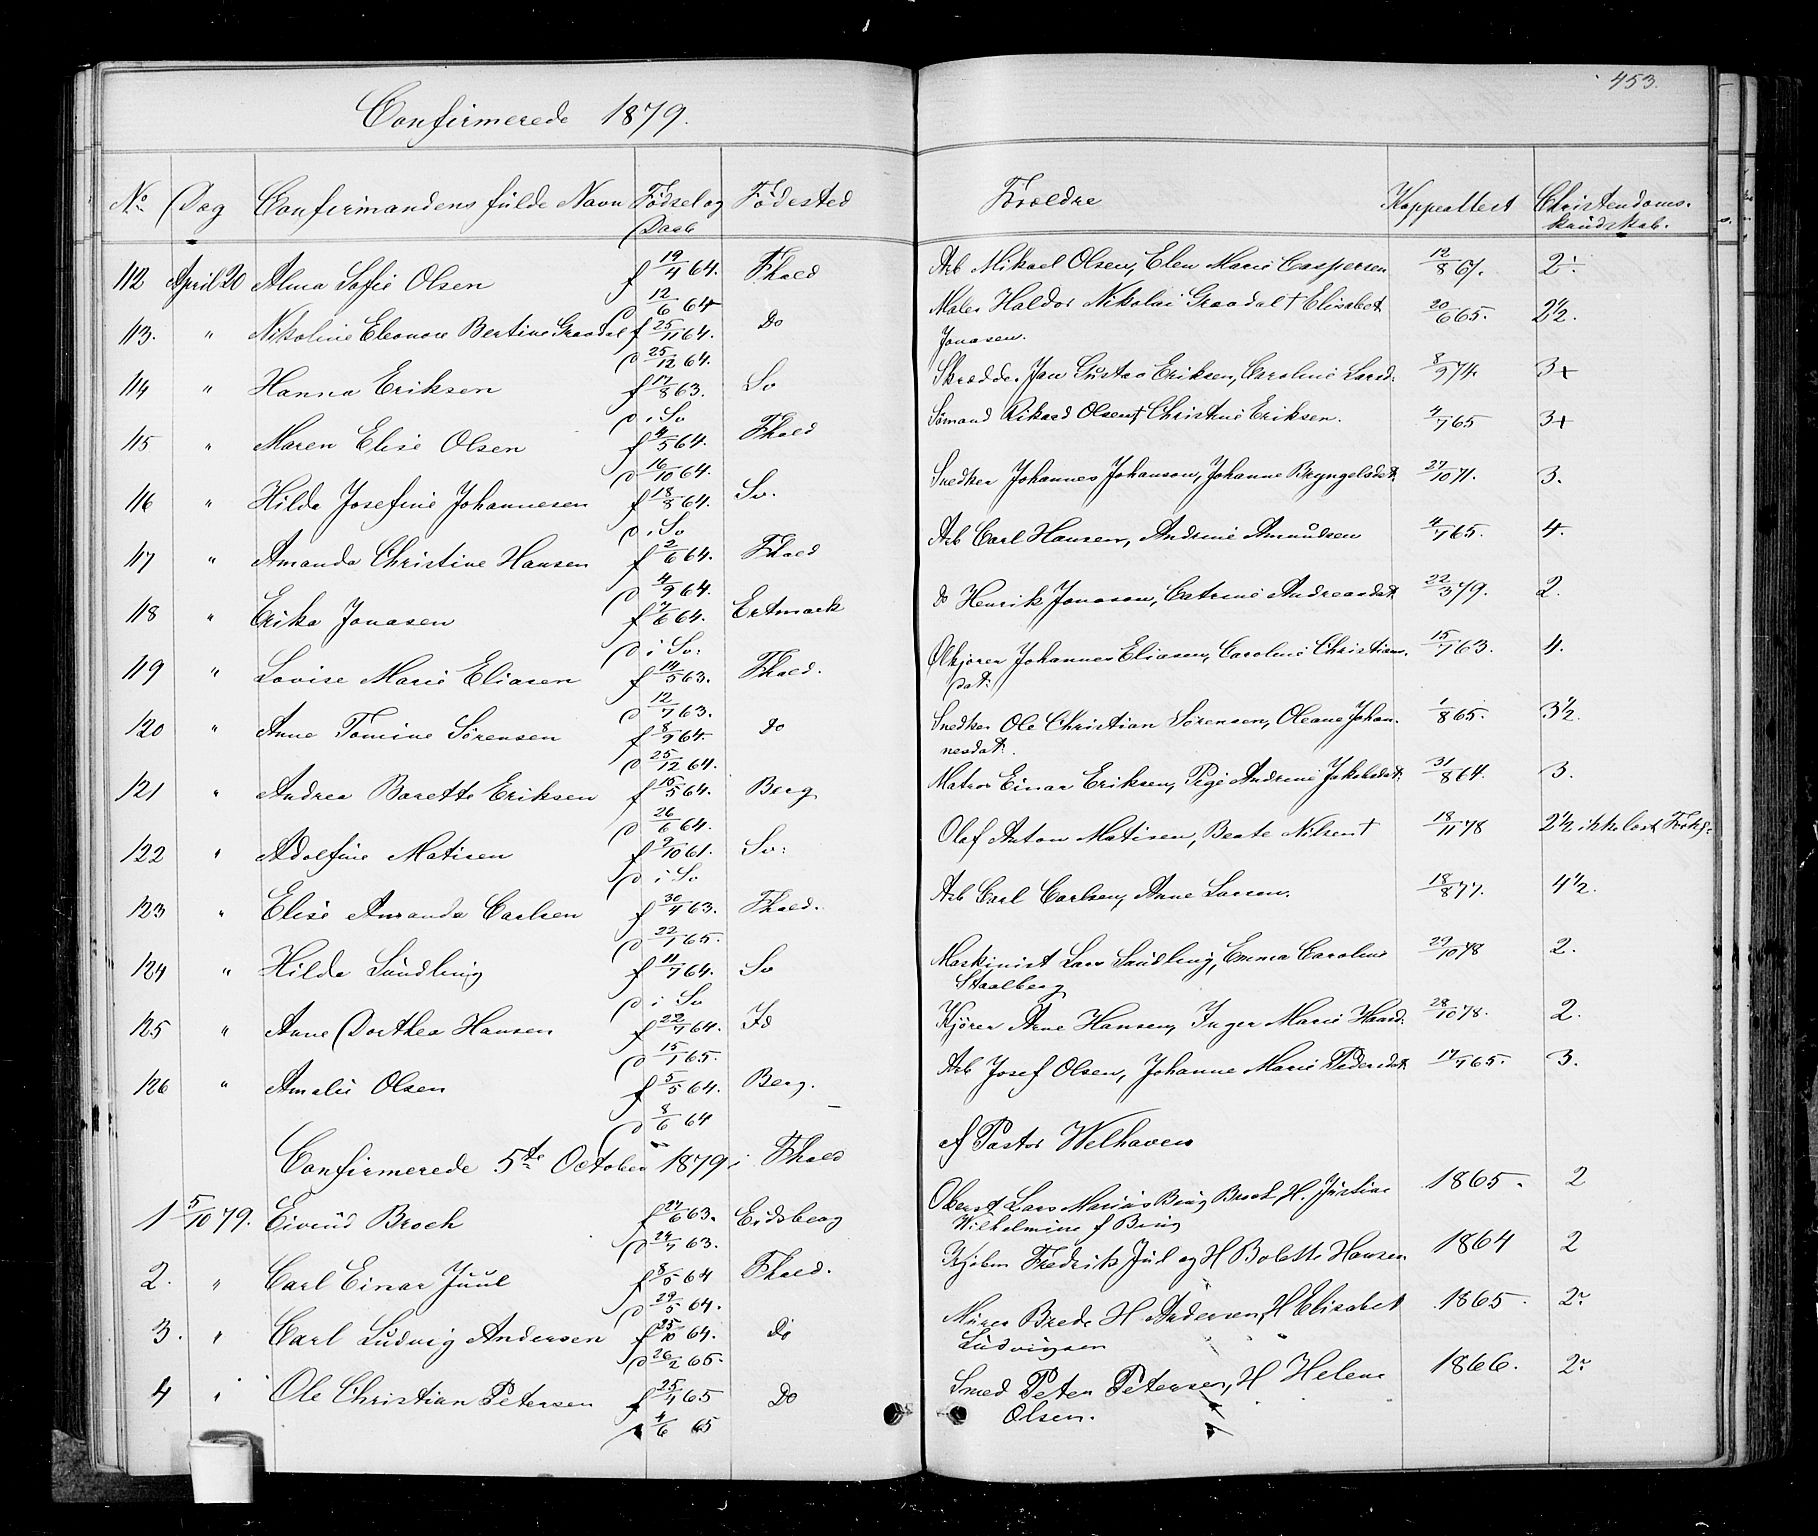 453.
Confirmerede 1879.
No Dag Confirmandens fulde Navn Fødsel og Daab Fødested Foroldre Koppeattest Christendoms-kundskab.
112 April 20 Alma Sofie Olsen f 19/4 64. Fhald Arb Mikael Olsen, Elen Marie Caspersen 12/8 67. 2÷
D 12/6 64
113. " Nikoline Eleonore Bertine Graadal f 25/11 64. Do Maler Haldor Nikolai Graadal † Elisabet 20/6 65. 2½.
D 25/12 64. Jonasen.
114 " Hanna Eriksen f 17/8 63. Sv Skrædder Jan Gustav Eriksen, Caroline Larsd. 8/9 74. 3+
D i Sv
115 " Maren Elise Olsen f 4/5 64. Fhald Sømand Rikard Olsen†, Christine Eriksen. 4/7 65 3+
D 16/10 64.
116 " Hilda Josefine Johannesen f 18/8 64. Sv. Snedker Johannes Johanson, Johanne Bryngelsdat. 27/10 71. 3.
D i Sv
117 " Amanda Christine Hansen f 2/6 64. Fhald Arb Carl Hansen, Andrine Amundsen 4/7 65. 4.
D 4/9 64.
118 " Erika Jonasen f 7/6 64. Ertmark do Henrik Jonason, Catrine Andreasdat. 22/3 79. 2.
D i Sv:
119 " Lovise Marie Eliasen f 14/5 63. Fhald. Ølkjører Johannes Eliasen, Caroline Christians- 15/7 63. 4.
D 12/7 63. dat:
120 " Anne Tomine Sørensen f 8/9 64. Do Snedker Ole Christian Sørensen, Oleane Johan- 1/8 65. 3½.
D 25/12 64. nesdat.
121 " Andrea Barette Eriksen f 15/5 64. Berg Matros Einar Eriksen, Pige Andrine Jakobsdat. 31/8 64. 3.
D 26/6 64.
122 " Adolfine Matisen f 9/10 61. Sv: Olaf Anton Matisen, Beate Nilsen† 18/11 78 2½ ikke løst
D i Sv
123 " Elise Amanda Carlsen f 30/4 63. Fhald. Arb Carl Carlsen, Anne Larsen. 18/8 77. 4½.
D 22/1 65.
124 " Hilda Sundling f 11/7 64. Sv Maskinist Lars Sundling, Emma Caroline 29/10 78 2.
D i Sv Staalberg
125 " Anne Dorthea Hansen f 22/7 64. Id Kjører Arne Hansen, Inger Marie Haard. 28/10 78. 2.
D 15/1 65.
126 " Amalie Olsen f 5/5 64. Berg. Arb Josef Olsen, Johanne Marie Pedersdat. 17/7 65. 3.
D 8/6 64
Confirmerede 5te October 1879 i Fhald af Pastor Welhaven
1 5/10 79. Eivind Broch f 27/6 63. Eidsberg Oberst Lars Marius Bing Broch, H. Justine 1865. 2
D 24/7 63. Wilhelmine f Bing
2. " Carl Einar Juul f 8/5 64 Fhald. Kjøbm Fredrik Jul og H Bolette Hansen 1864 2
D 29/5 64.
3. " Carl Ludvig Andersen f 25/10 64. Do Murer Brede H Andersen, H Elisabet 1865. 2
D 26/2 65. Ludvigsen
4 " Ole Christian Petersen f 25/4 65 Do Smed Peter Petersen, H Helene 1866. 2
D 4/6 65 Olsen.